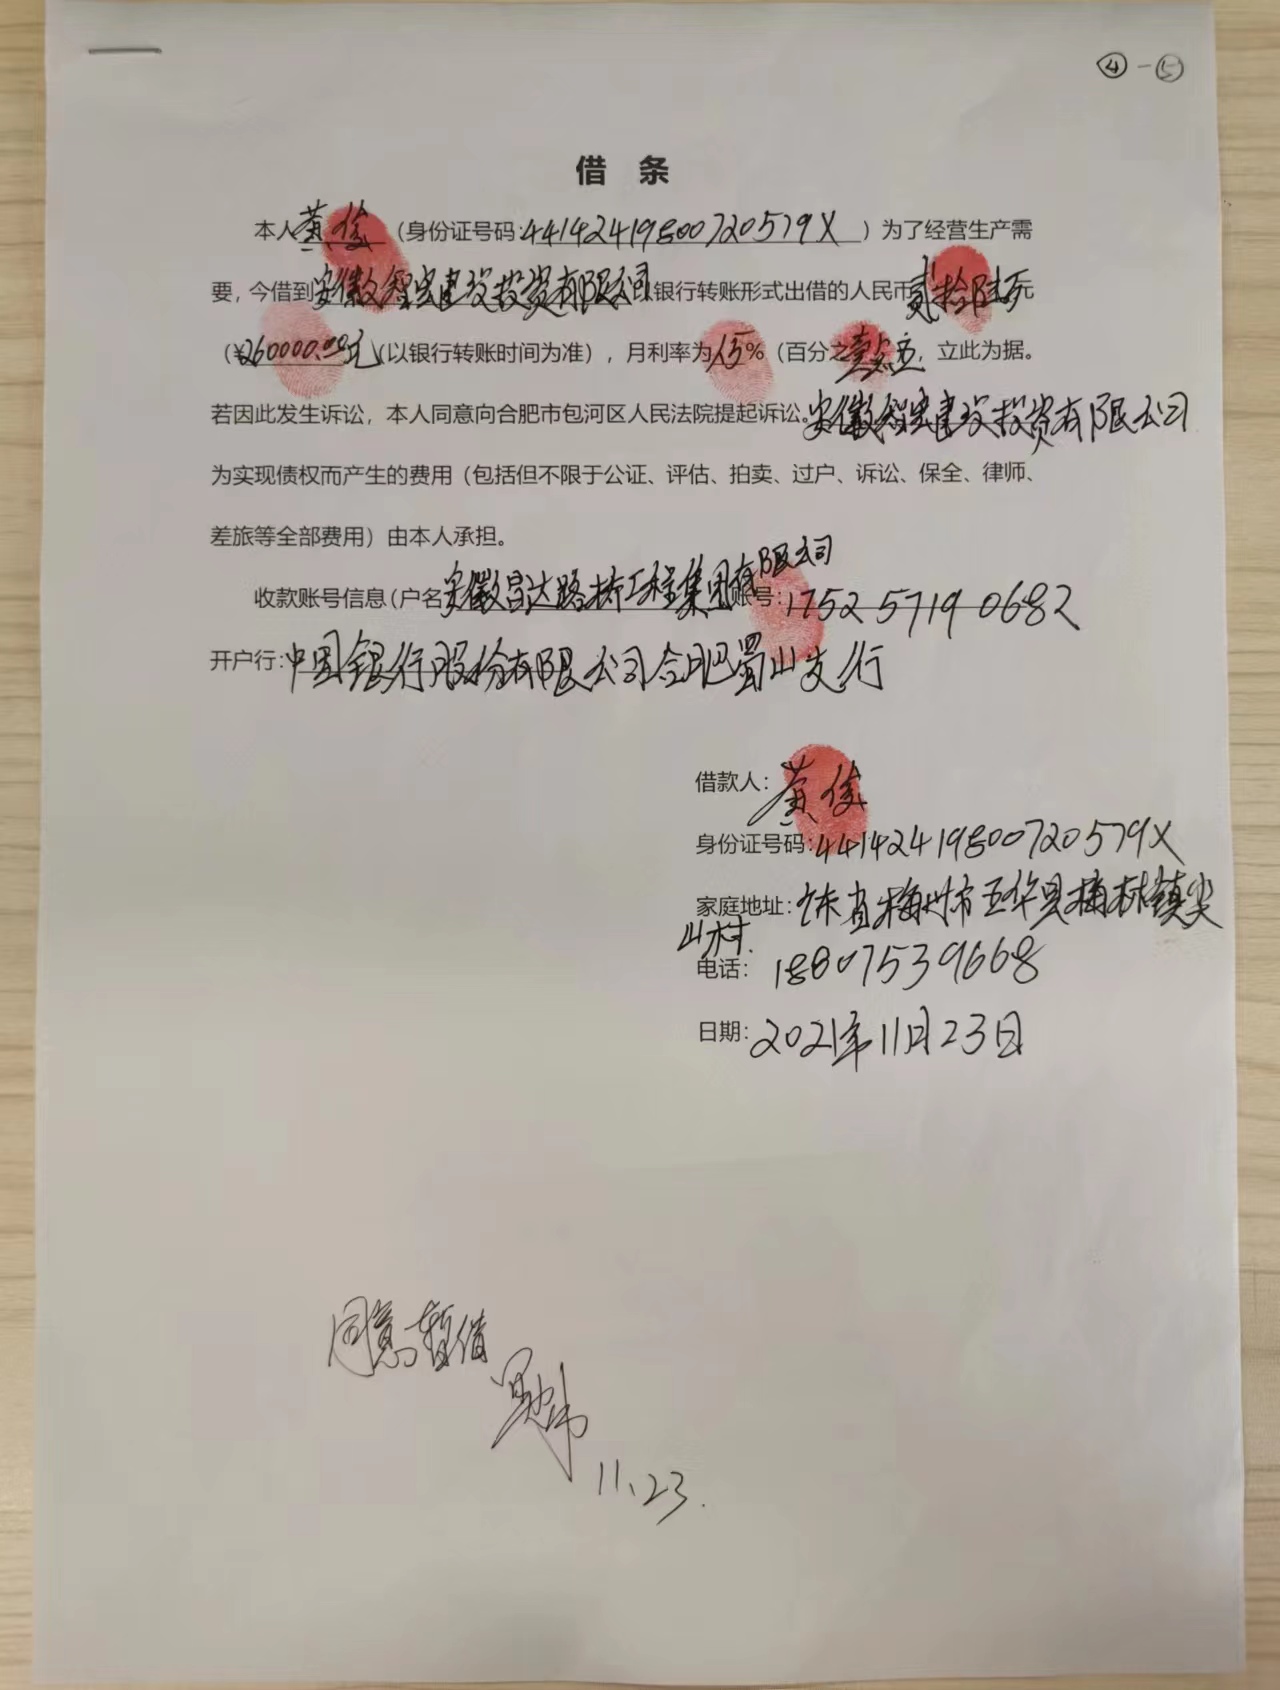 ④-⑤
借 条
本人黄俊（身份证号码:44142419800720579X）为了经营生产需
要，今借到安徽智宏建设投资有限公司以银行转账形式出借的人民币贰拾陆万元
（¥260000.00元（以银行转账时间为准），月利率为1.5%（百分之壹点五，立此为据。
若因此发生诉讼，本人同意向合肥市包河区人民法院提起诉讼。安徽智宏建设投资有限公司
为实现债权而产生的费用（包括但不限于公证、评估、拍卖、过户、诉讼、保全、律师、
差旅等全部费用）由本人承担。
收款账号信息（户名安徽昌达路桥工程集团有限公司账号:175257190682
开户行:中国银行股份有限公司合肥蜀山支行
借款人:黄俊
身份证号码:44142419800720579X
家庭地址:广东省梅州市五华县梅林镇尖
山村.
电话:18807539668
日期:2021年11月23日
同意暂借
11.23.